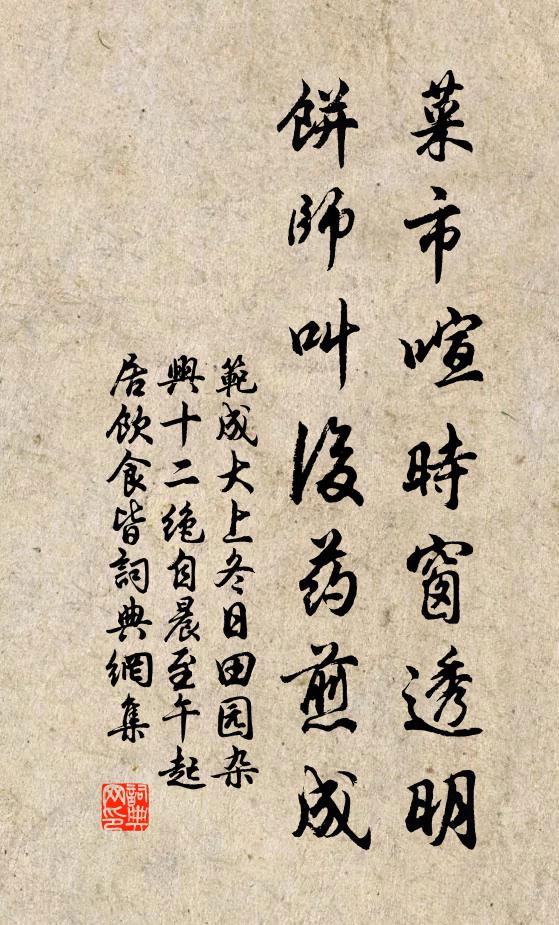 菜市喧時窗透明
餅師叫後药煎成
範成大上冬日田园杂
興十二绝自晨至午起
居飲食皆詞典網集
詞典
网印